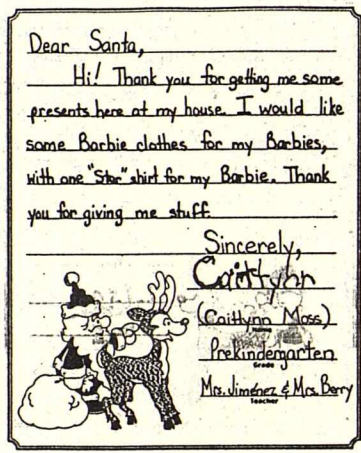 Dear Santa,
Hi! Thank you for getting me some
presents here at my house. I would like
some Barbie clothes for my Barbies,
with one "Star" shirt for my Barbie. Thank
you for giving me stuff.
Sincerely,
Caitlynn
(Caitlynn Moss)
Name
Prekindergarten
Grade
Mrs. Jiménez & Mrs. Berry
Teacher